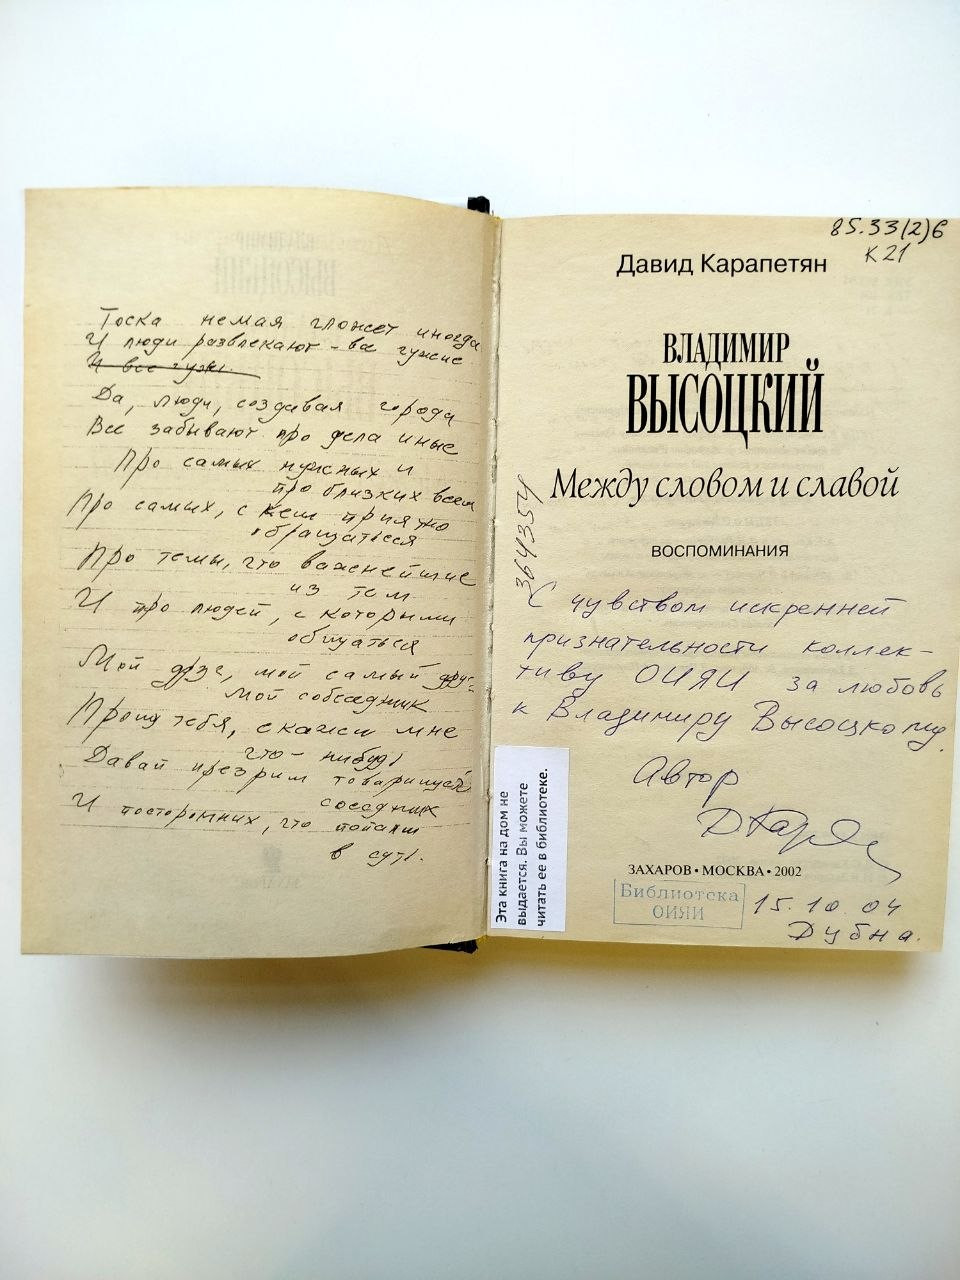 Тоска немая гложет иногда
И люди развлекают - все чужие
И все чужи.
Да, люди, создавая города
Все забывают про дела иные
Про самых нужных и
про близких всем
Про самых, с кем приятно
обращаться
Про темы, что важнейшие
из тем
И про людей, с которыми
общаться
Мой друг, мой самый друг
мой собеседник
Прошу тебя, скажи мне
что-нибудь
Давай презрим товарищества
соседних
И посторонних, что попали
в суть.
ЗАХАРОВ
85.33(2)6
К21
Давид Карапетян
ВЛАДИМИР
ВЫСОЦКИЙ
Между словом и славой
ВОСПОМИНАНИЯ
364354
С чувством искренней
признательности коллек-
тиву ОИЯИ за любовь
к Владимиру Высоцкому.
Автор
ДКар
Эта книга на дом не
выдается. Вы можете
читать ее в библиотеке.
ЗАХАРОВ • МОСКВА • 2002
Библиотека
ОИЯИ
15.10.04
Дубна.